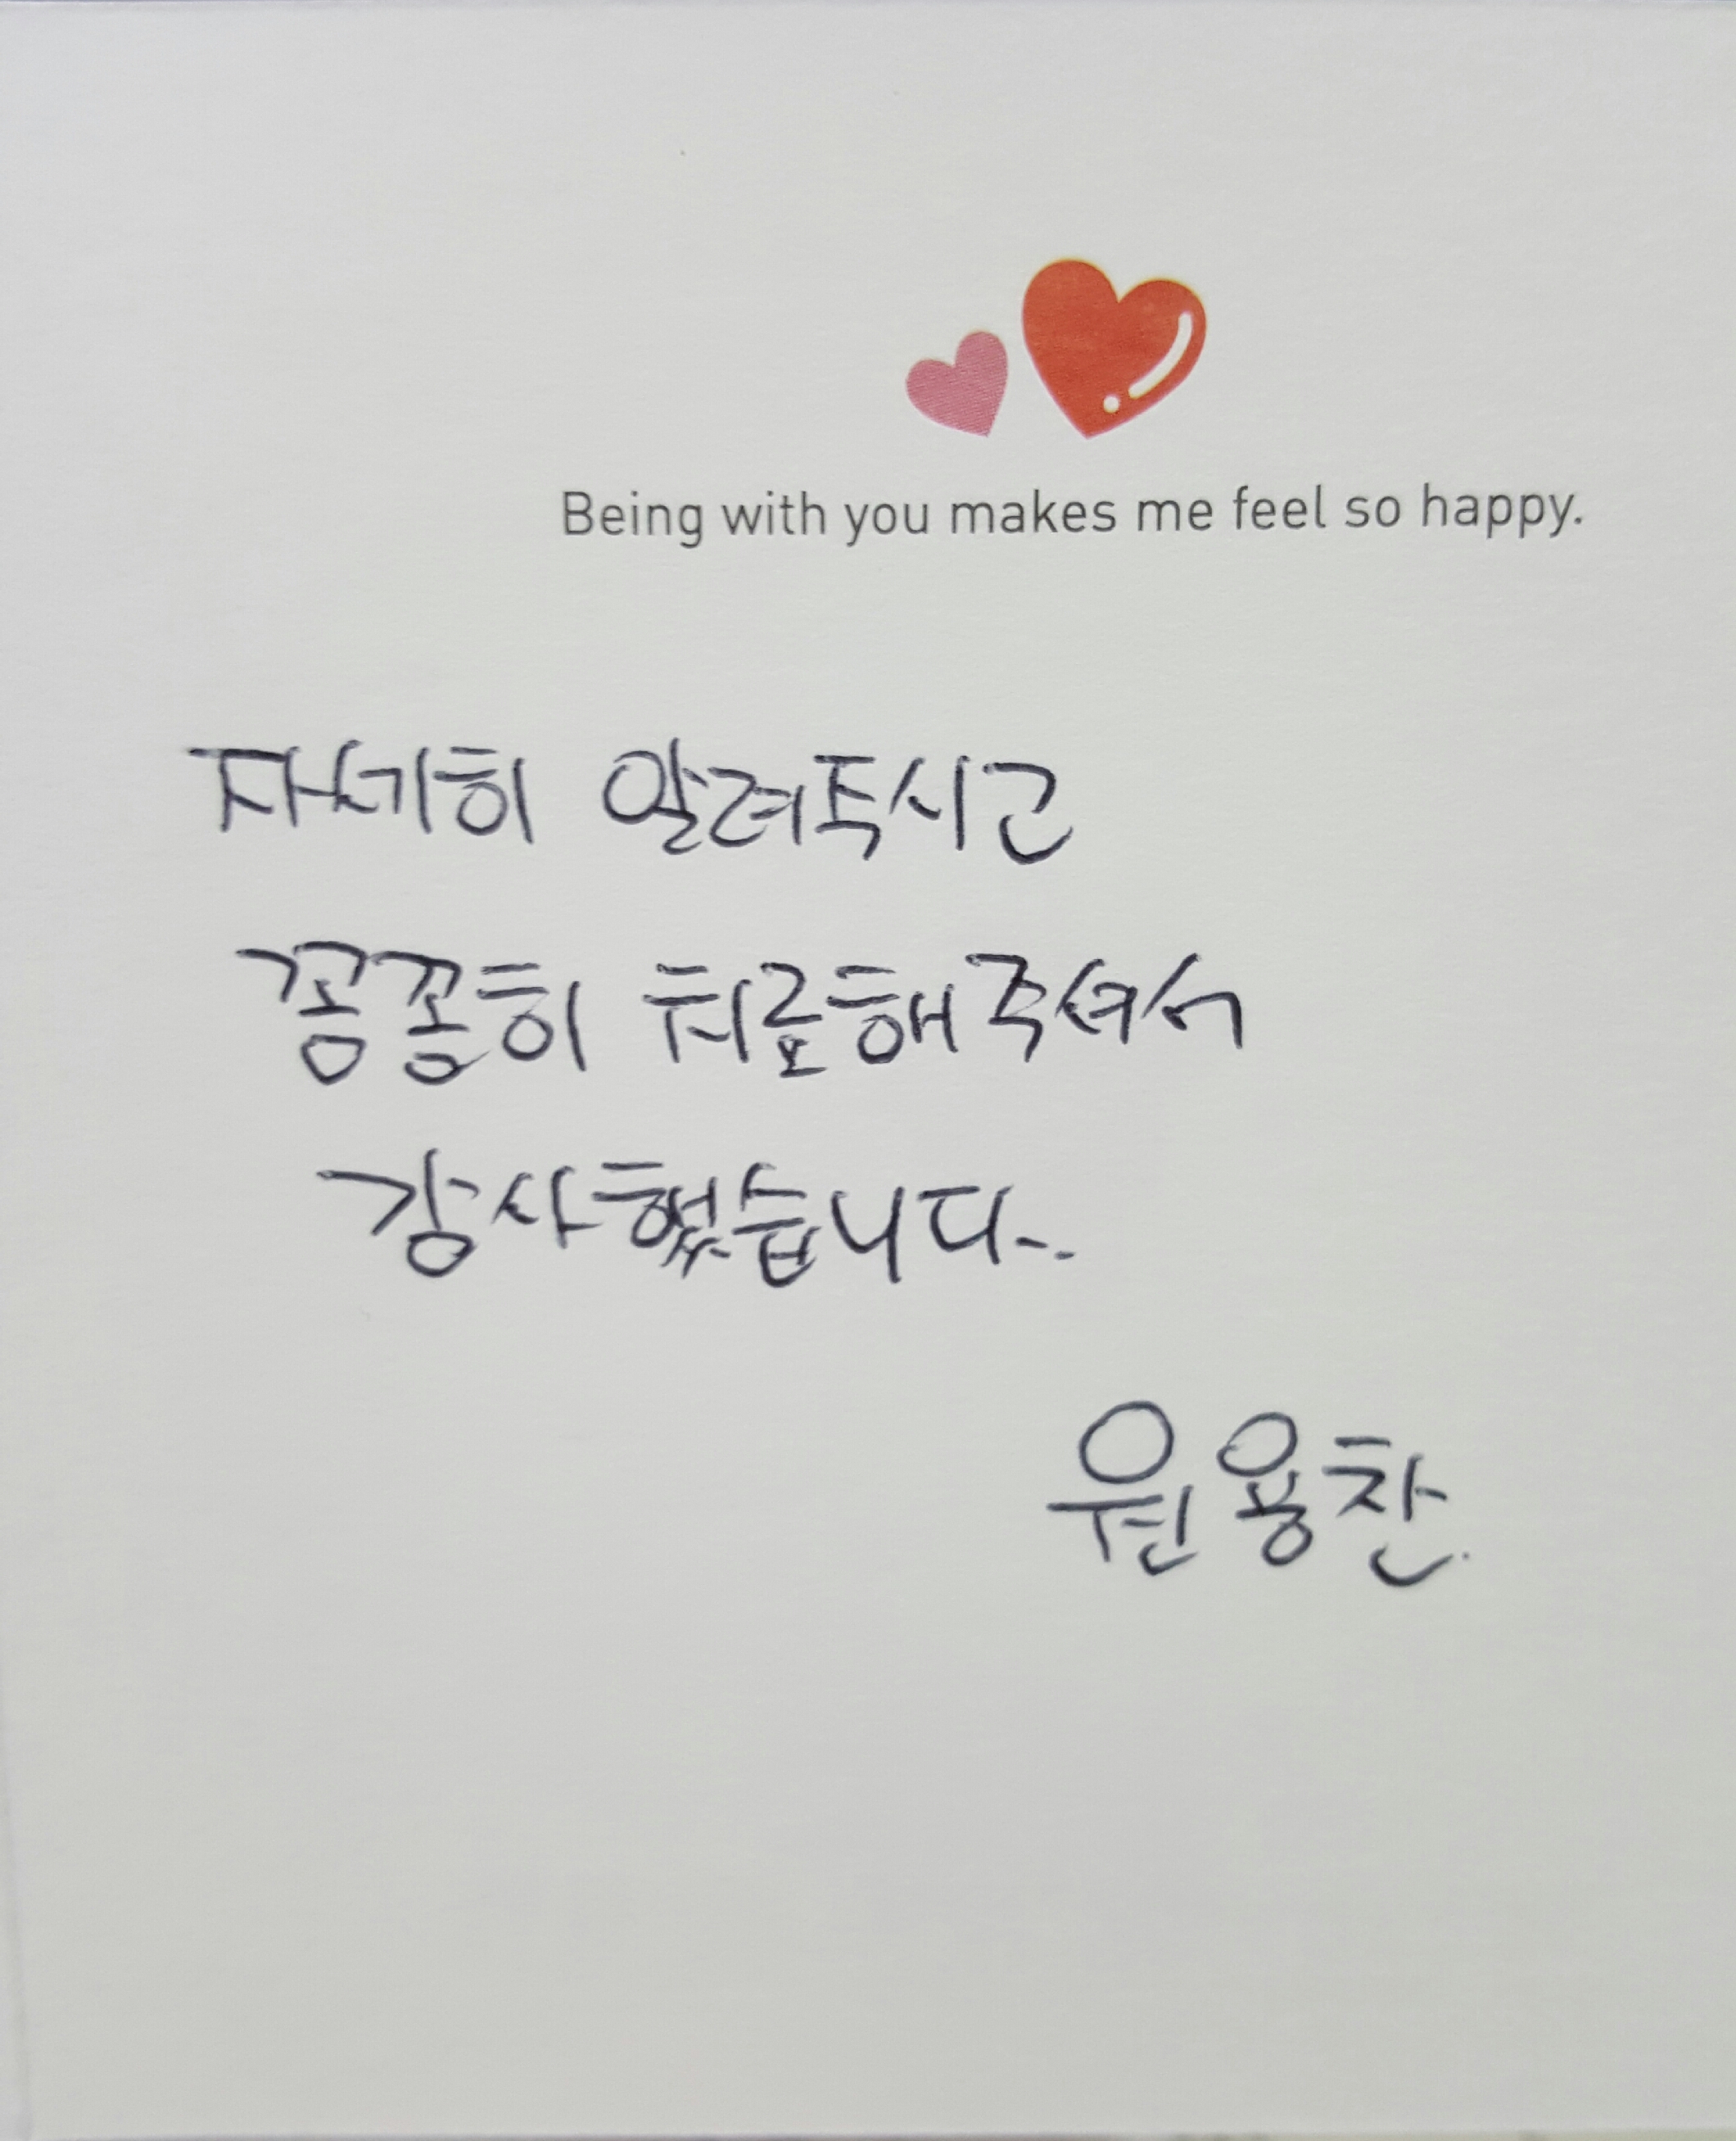 Being with you makes me feel so happy.
자세히 알려주시고
꼼꼼히 치료해주셔서
감사했습니다..
원용찬.